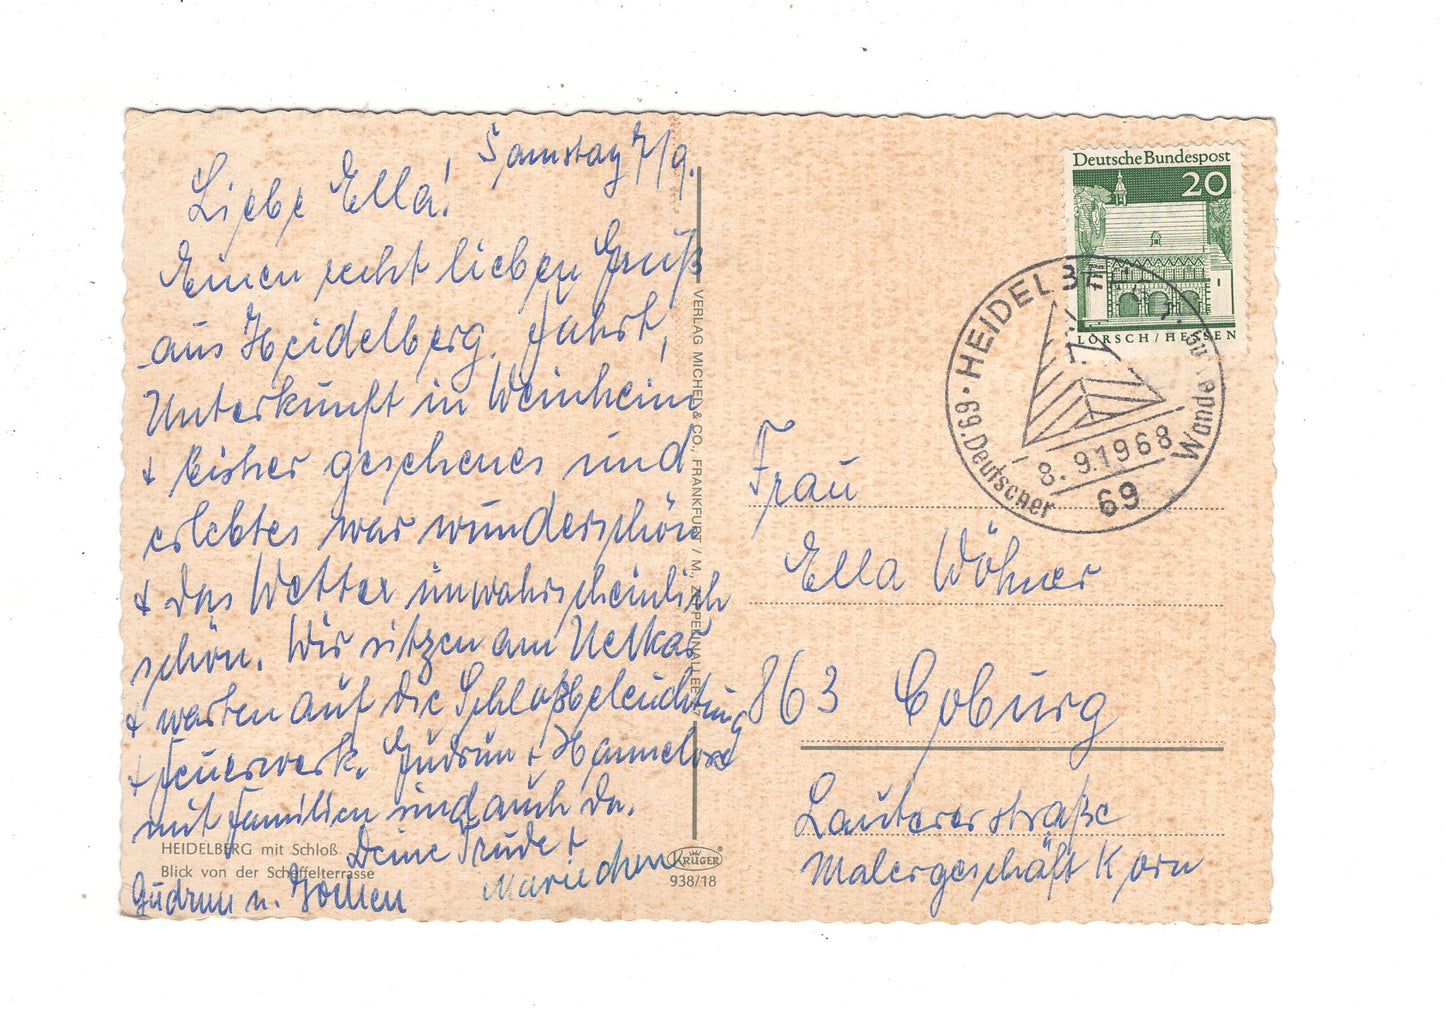 Samstag 7/9.
Liebe Ella!
Einen recht lieben Gruß
aus Heidelberg. Fahrt,
Unterkunft in Weinheim
+ bisher gesehenes und
erlebtes war wunderschön
+ das Wetter unwahrscheinlich
schön. Wir sitzen am Neckar
+ warten auf die Schloßbeleuchtung
+ Feuerwerk. Gudrun + Hannelore
mit Familien sind auch da.
Deine Trude +
Mariechen
Gudrun u. Jochen
HEIDELBERG mit Schloß
Blick von der Scheffelterrasse
VERLAG MICHEL & CO., FRANKFURT / M., ZEPPELINALLEE
KRÜGER
938/18
Deutsche Bundespost
20
LORSCH/HESSEN
HEIDELBERG
69. Deutscher
8.9.1968
69
Frau
Ella Wöhner
863 Coburg
Lautererstraße
Malergeschäft Korn